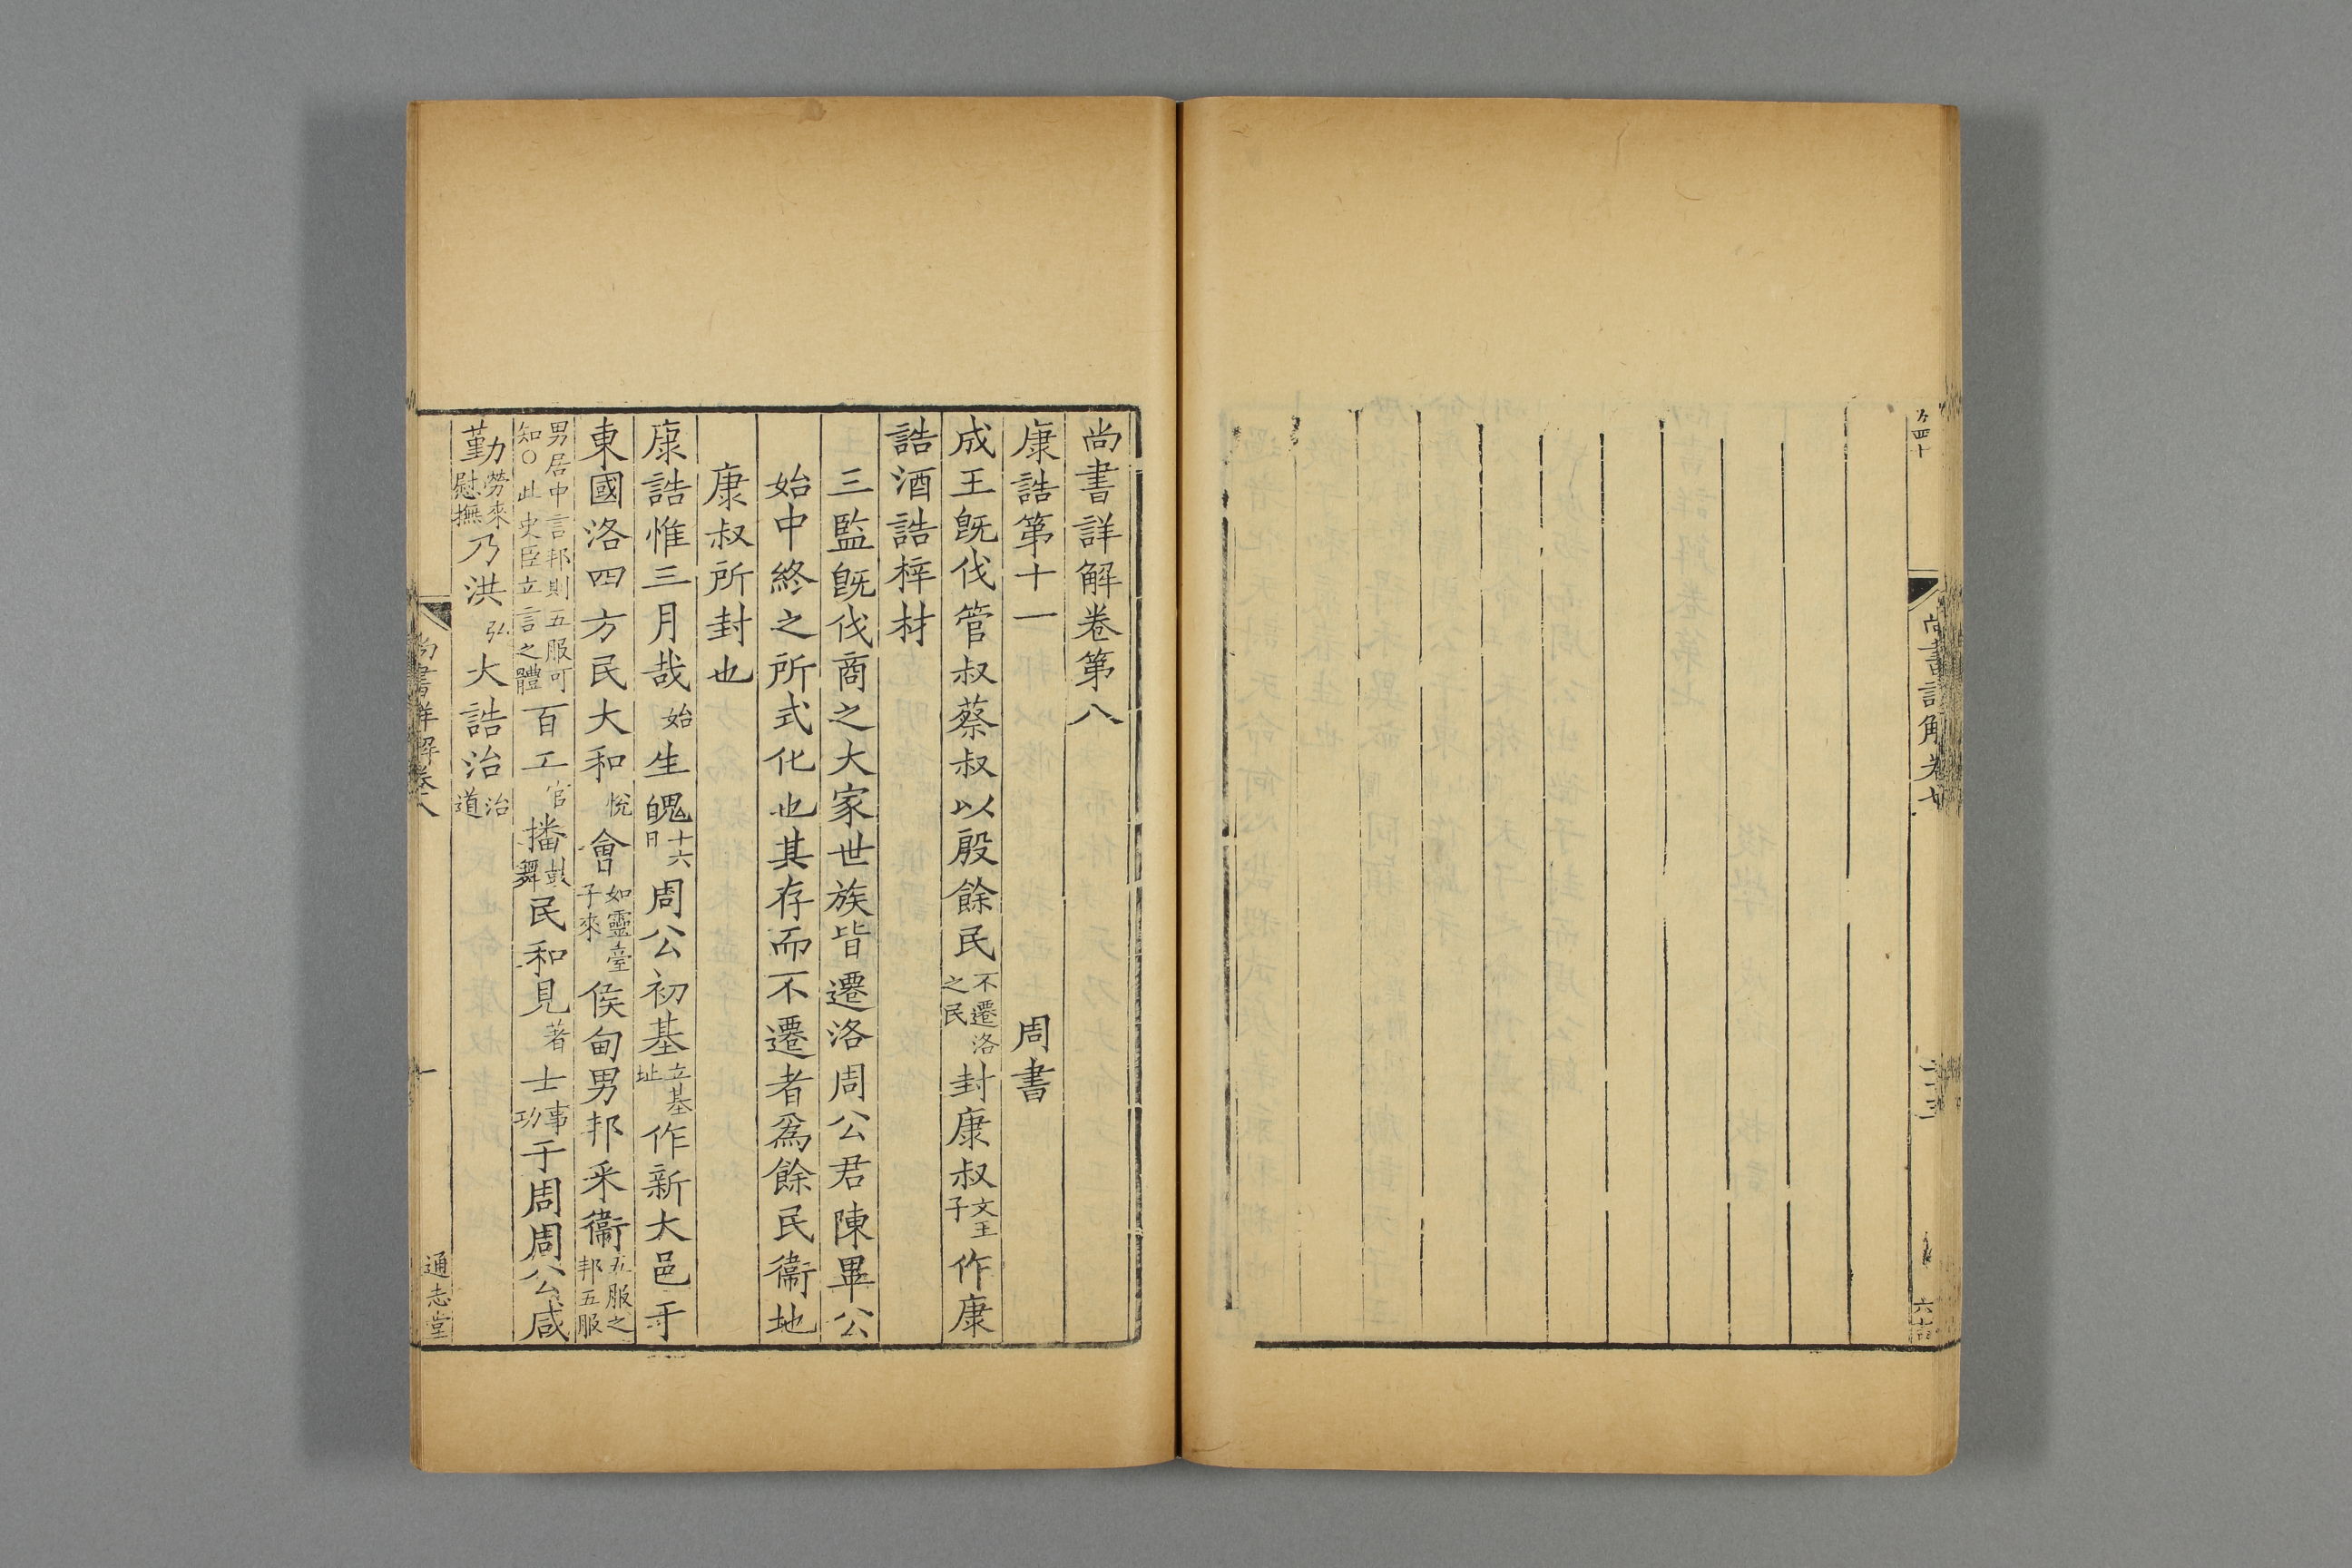 尚書詳解卷第八
康誥第十一 周書
成王旣伐管叔蔡叔以殷餘民不遷洛之民封康叔文王子作康
誥酒誥梓材
三監旣伐商之大家世族皆遷洛周公君陳畢公
始中終之所式化也其存而不遷者爲餘民衞地
康叔所封也
康誥惟三月哉始生魄十六日周公初基立基址作新大邑于
東國洛四方民大和悅會如靈臺子來侯甸男邦采衞五服之邦五服
男居中言邦則五服可知○此史臣立言之體百工官播鼓舞民和見著士事功于周周公咸
勤勞來慰撫乃洪弘大誥治治道
尚書詳解卷八
一
通志堂
尚書詳解卷七